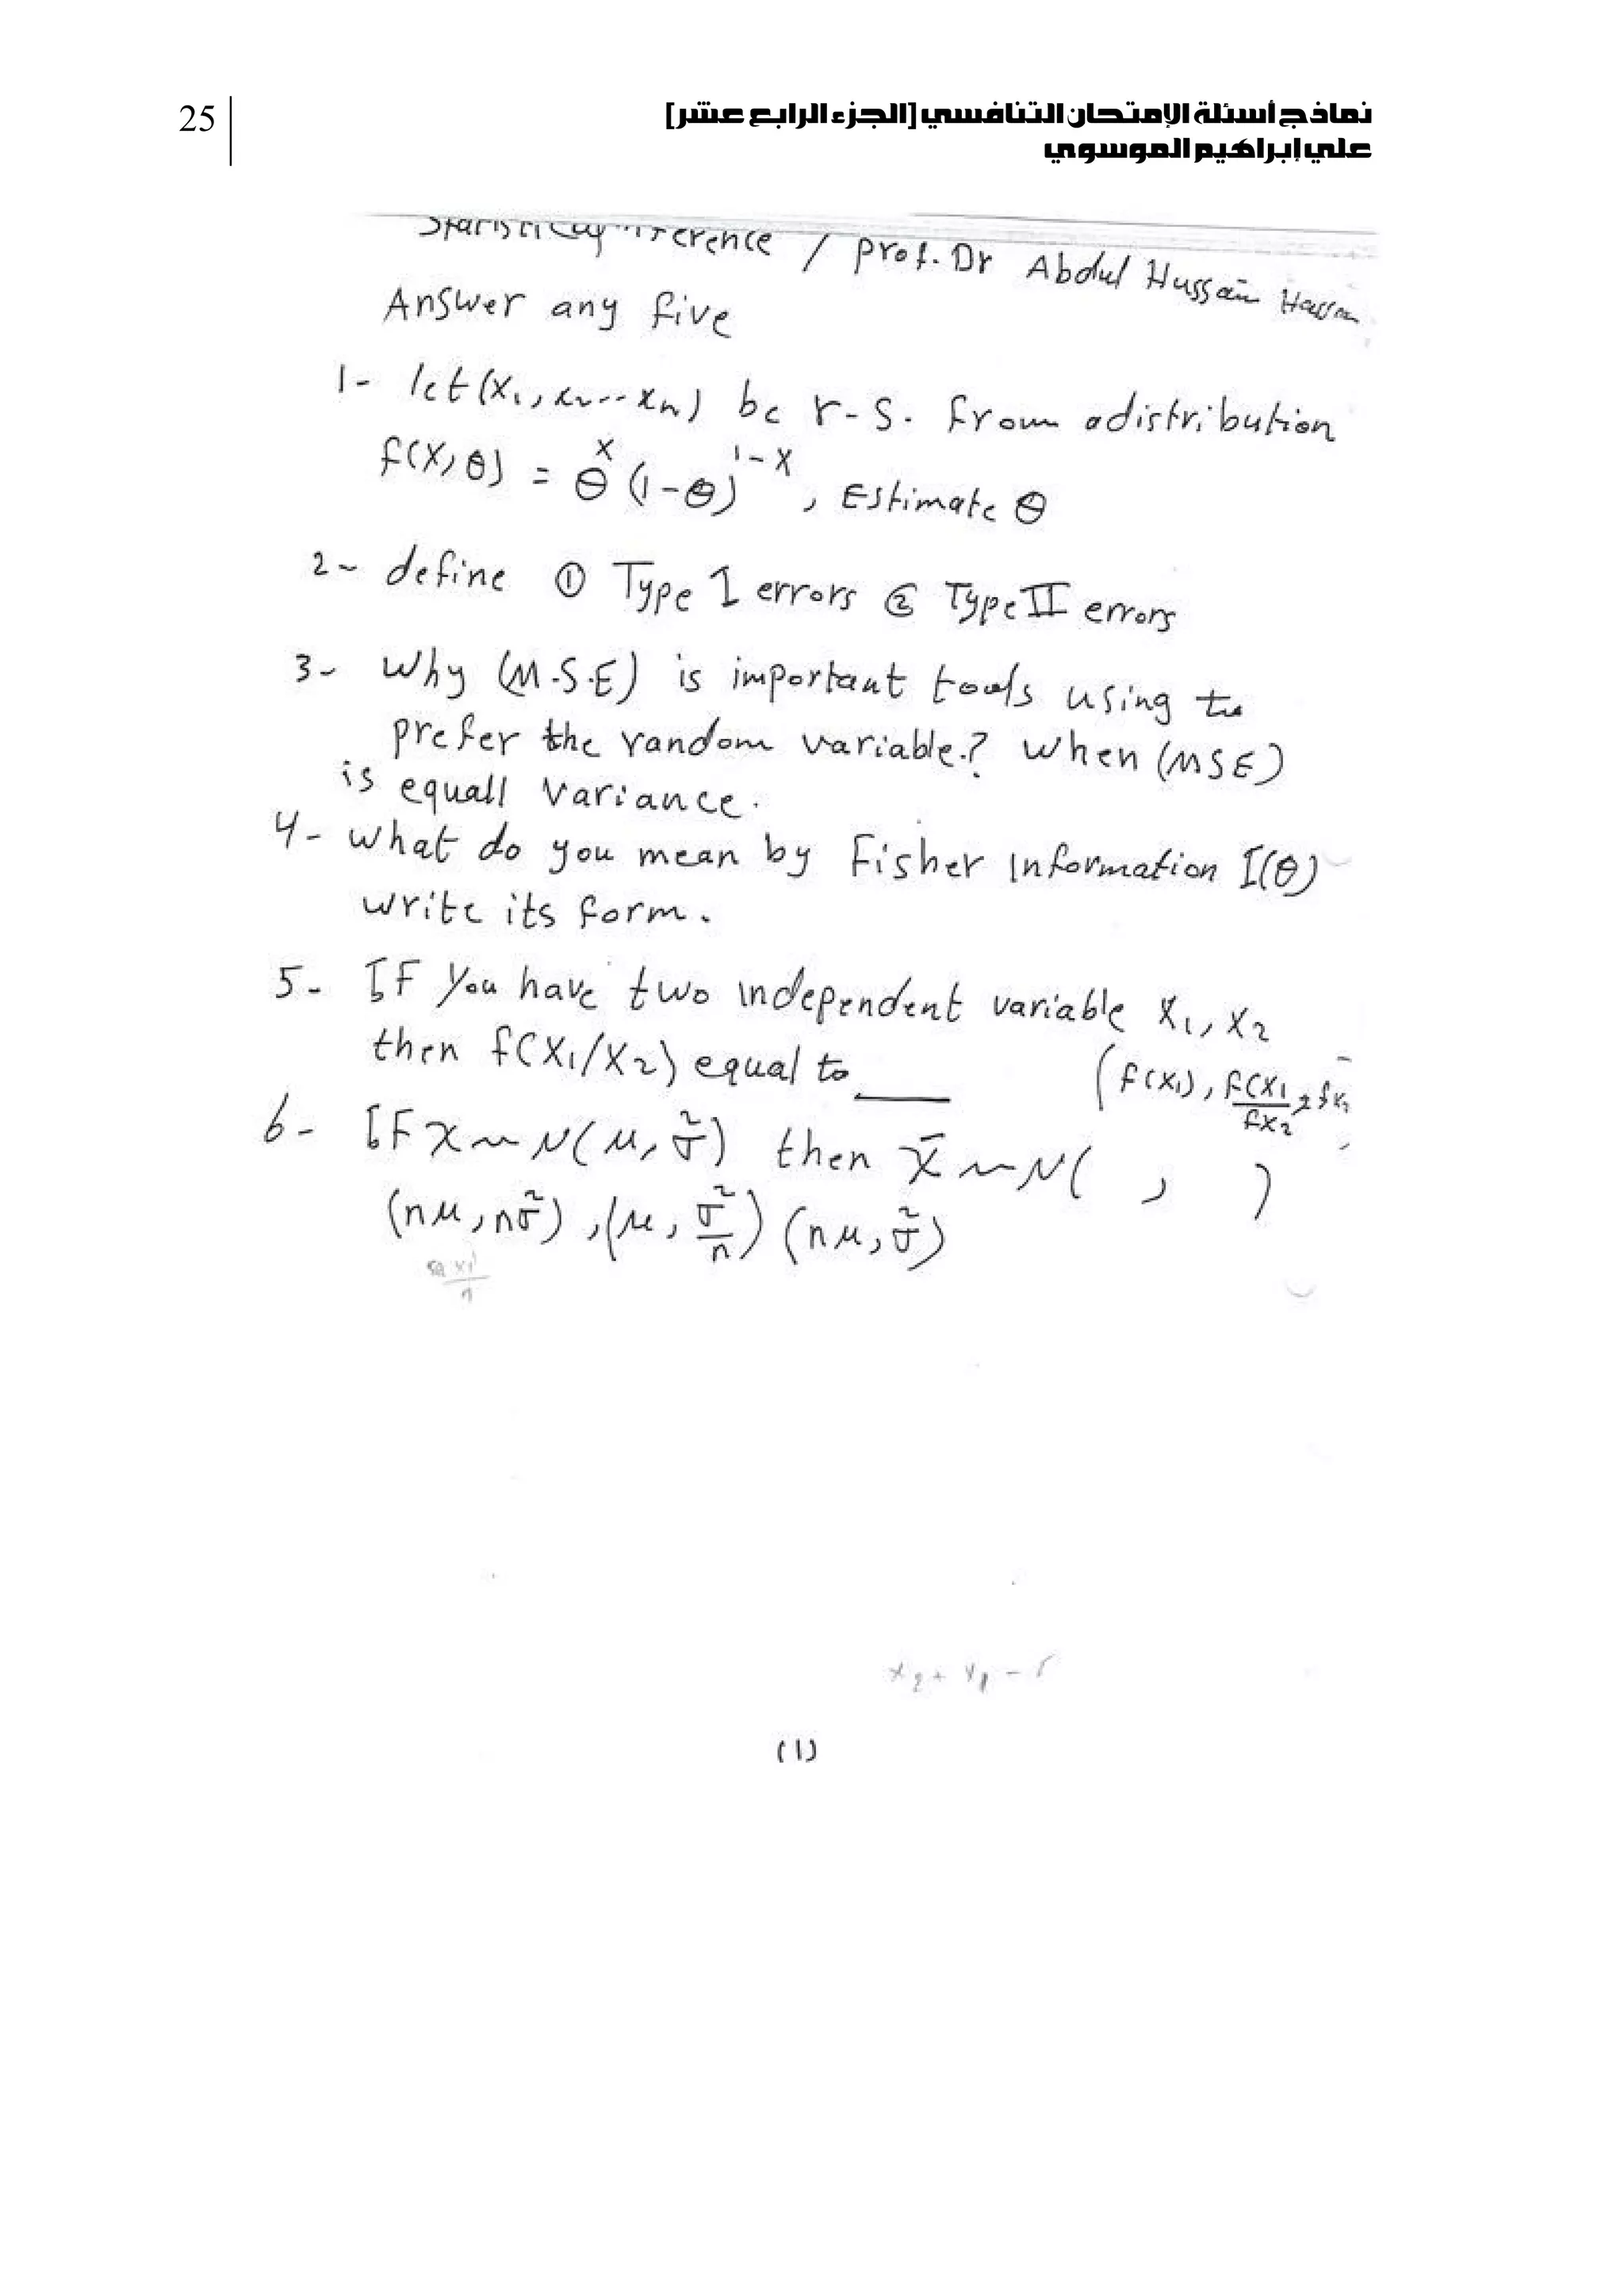 25
نماذج أسئلة الإمتحان التنافسي [الجزء الرابع عشر]
علي إبراهيم الموسوي
/ Prof. Dr Abdul Hussain Hassan
Answer any five
1- let (X₁, x₂ .. xₙ) be r-s. from a distribution
f(X, θ) = θˣ (1-θ)¹⁻ˣ, Estimate θ
2- define ① Type I errors ② Type II errors
3- Why (M.S.E) is important tools using to
prefer the random variable.? When (MSE)
is equall variance.
4- what do you mean by Fisher Information I(θ)
write its form.
5- IF You have two independent variable X₁, X₂
then f(X₁/X₂) equal to ____ (f(x₁), f(X₁/fx₂
6- IF x ~ N(μ, σ²) then x̄ ~ N( , )
(nμ, nσ²), (μ, σ²/n) (nμ, σ²)
(1)